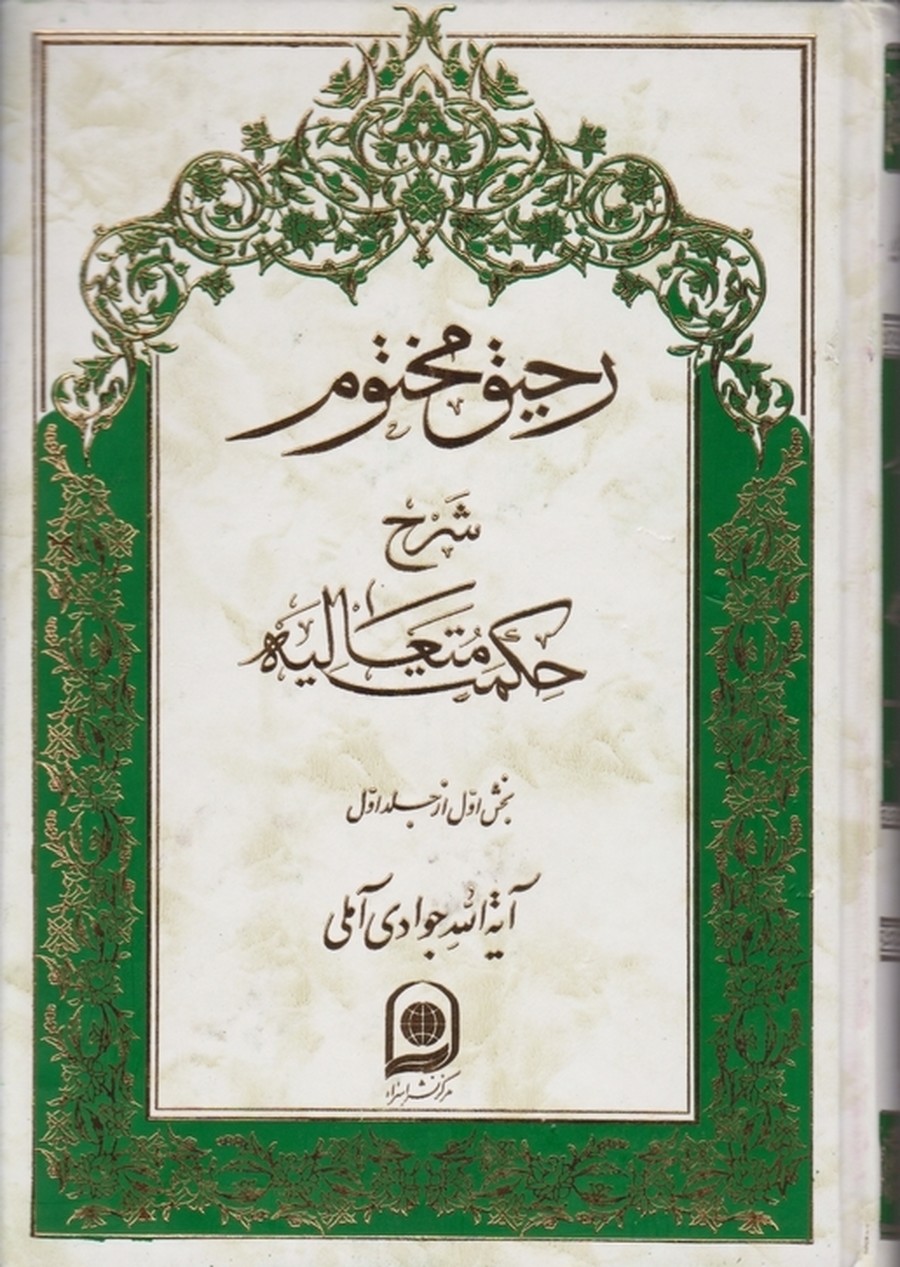 رحیق مختوم
شَرح
حِکمت مُتعَالیَه
بخش اوّل از جلد اوّل
آیة اللّه جوادی آملی
مرکز نشر اسراء